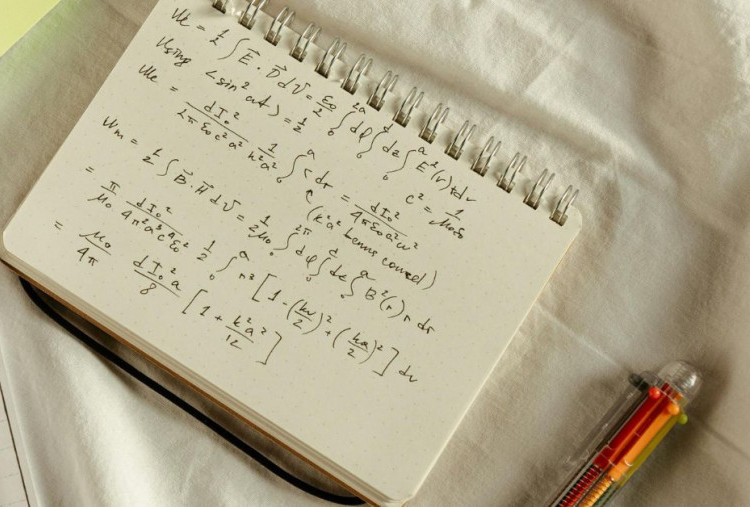 We = 1/2 ∫ E⃗ · D⃗ dV⃗ = ε₀/2 ∫₀^2π dφ ∫₀^d dz ∫₀^a E²(r) r dr
Using <sin² ωt> = 1/2 c² = 1/μ₀ε₀
We = dI₀²/2πε₀c²a² 1/k²a² ∫₀^a r dr = dI₀²/4πε₀c²ω²
(k²a² terms cancel)
Wm = 1/2 ∫ B⃗ · H⃗ dV⃗ = 1/2μ₀ ∫₀^2π dφ ∫₀^d dz ∫₀^a B²(r) r dr
= π/μ₀ dI₀²/4π²a⁴c⁴ε₀² 1/2 ∫₀^a r³ [1 - (kr/2)² + (ka/2)²] dr
= μ₀/4π dI₀²a/8 [1 + k²a²/12]